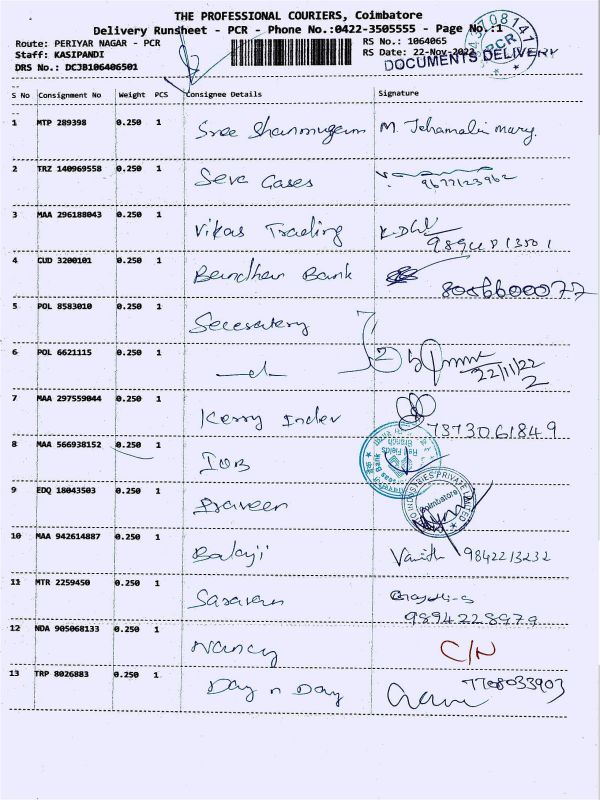 THE PROFESSIONAL COURIERS, Coimbatore
Delivery Runsheet - PCR - Phone No.:0422-3505555 - Page No.:1
Route: PERIYAR NAGAR - PCR RS No.: 1064065
Staff: KASIPANDI RS Date: 22-Nov-2022
DRS No.: DCJB106406501
DOCUMENTS DELIVERY
PCR
S No Consignment No Weight PCS Consignee Details Signature
1 MTP 289398 0.250 1 Sree Shanmugam M. Jehamalin mary.
2 TRZ 140969558 0.250 1 Seva Gases
9677123962
3 MAA 296188043 0.250 1 Vikas Trading
4 CUD 3200101 0.250 1 Bandhan Bank
8006600077
5 POL 8583010 0.250 1
6 POL 6621115 0.250 1 2
22/11/22
2
7 MAA 297559044 0.250 1 Kerry Indev 7373061849
8 MAA 566938152 0.250 1 IOB
Red Fields
Branch
9 EDQ 18043503 0.250 1 Praveen
INDUSTRIES PRIVATE LIMITED
Coimbatore
10 MAA 942614887 0.250 1 Balaji 9842213232
11 MTR 2259450 0.250 1 Saravan
9894228979
12 NDA 905068133 0.250 1 Nancy C/N
13 TRP 8026883 0.250 1 Day n Day 7708033903